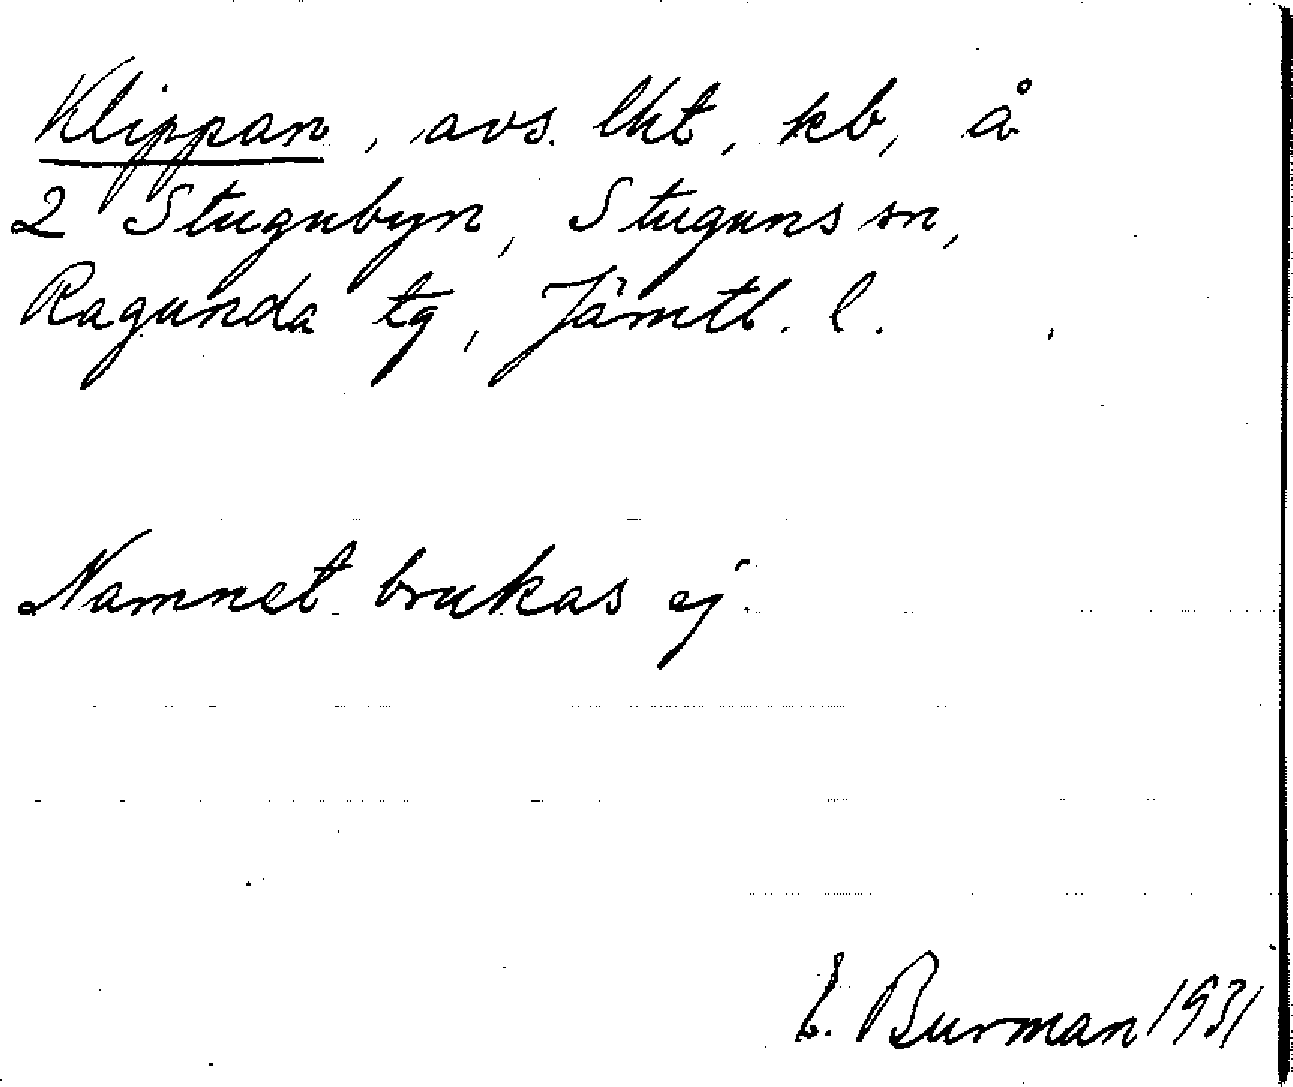 Klippan, avs. lht, kb, å
2 Stugubyn, Stuguns sn,
Ragunda tg, Jämtl. l.
Namnet brukas ej.
E. Burman 1931